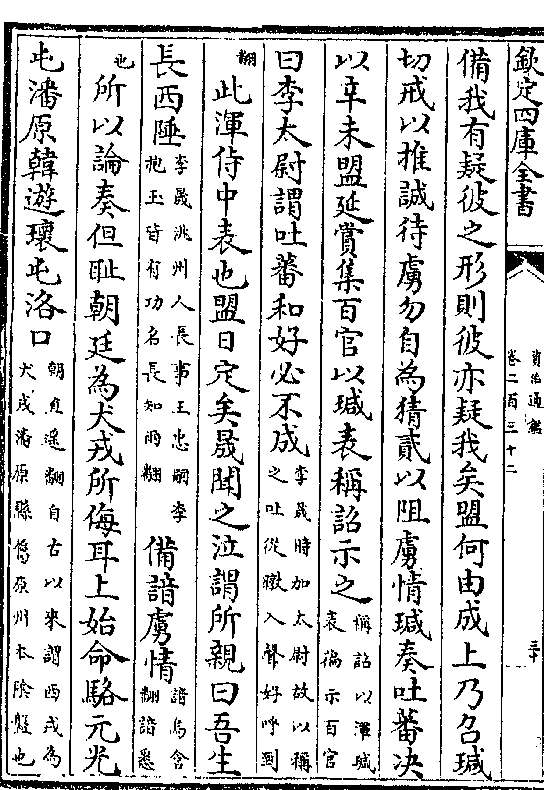 欽定四庫全書
資治通鑑
卷二百三十二
三十
備我有疑彼之形則彼亦疑我矣盟何由成上乃召瑊
切戒以推誠待虜勿自為猜貳以阻虜情瑊奏吐蕃决
以辛未盟延賞集百官以瑊表稱詔示之稱詔以渾瑊表徧示百官
曰李太尉謂吐蕃和好必不成李晟時加太尉故以稱之吐從暾入聲好呼到
翻此渾侍中表也盟日定矣晟聞之泣謂所親曰吾生
長西陲李晟洮州人長事王忠嗣李抱玉皆有功名長知兩翻備諳虜情諳烏含翻諳悉
也所以論奏但耻朝廷為犬戎所侮耳上始命駱元光
屯潘原韓遊瓌屯洛口朝直遥翻自古以來謂西戎為犬戎潘原縣僑原州本陰盤也